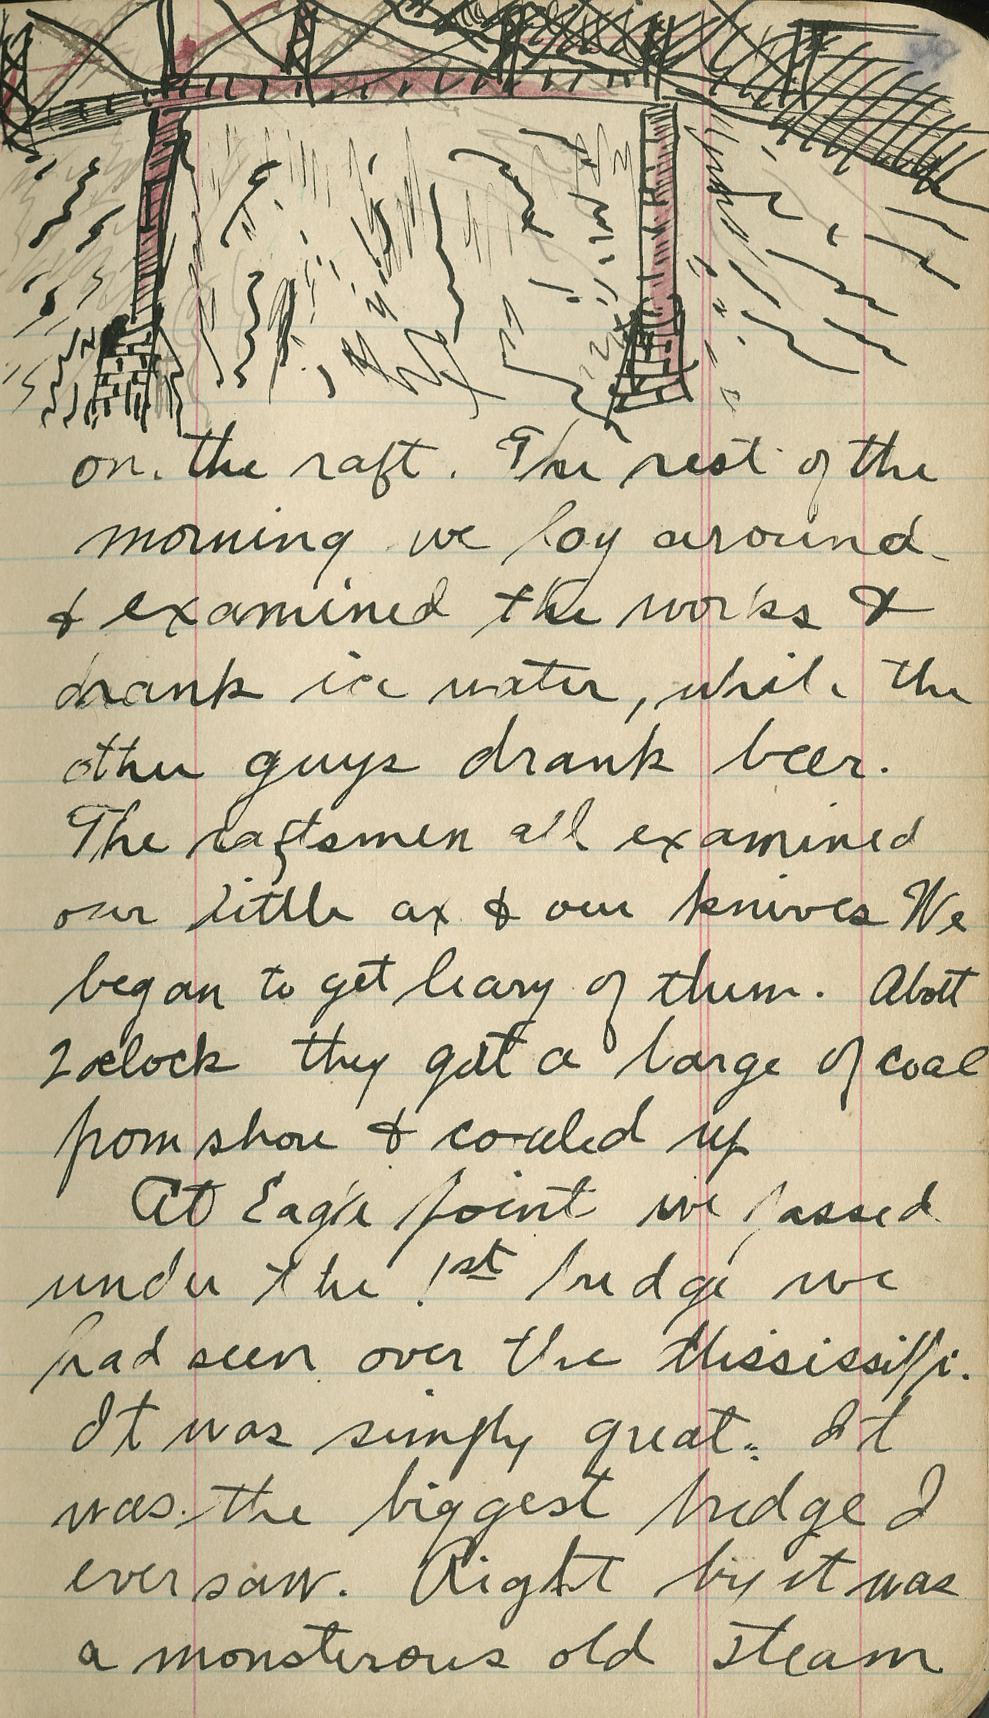 on. the raft. The rest of the
morning we lay around
& examined the works &
drank ice water, while the
other guys drank beer.
The raftsmen all examined
our little ax & our knives We
began to get leary of them. Abott
2 oclock they got a barge of coal
from shore & coaled up
At Eagle Point we passed
under the 1st bridge we
had seen over the Mississippi.
It was simply great. It
was the biggest bridge I
ever saw. Right by it was
a monsterous old steam